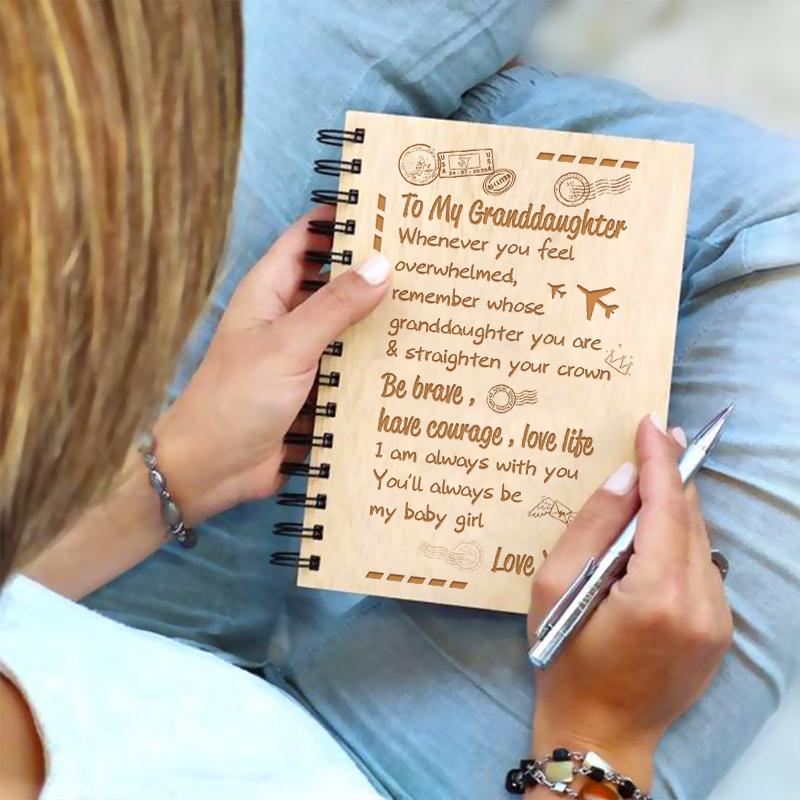 USA
USA
24-07-2020
To My Granddaughter
Whenever you feel
overwhelmed,
remember whose
granddaughter you are
& straighten your crown
Be brave ,
have courage , love life
I am always with you
You'll always be
my baby girl
Love